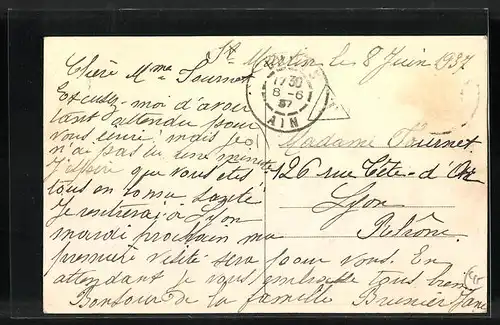 St Martin le 8 Juin 1937
Chère Mme Fournet
Excusez-moi d'avoir
tant attendu pour
vous écrire mais je
n'ai pas eu une minute
J'espère que vous êtes
tous en bonne santé
Je rentrerai à Lyon
mardi prochain ma
première visite sera pour vous. En
attendant je vous embrasse tous bien
Bonjour de la famille Brunier Jane
1730
8 - 6
37
AIN
Madame Fournet
126 rue Tête-d'Or
Lyon
Rhône